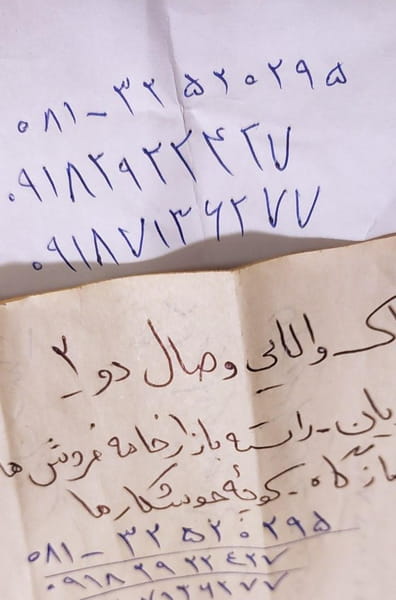 ۰۸۱- ۳۲ ۵۲۰۲۹۵
۰۹۱۸۲۹۲۲۴۲۷
۰۹۱۸۷۱۳۶۲۷۷
والایی وصال دو ۲
راسته بازار خامه فروش ها
کوچهٔ جوشکارها
۰۸۱- ۳۲ ۵۲۰۲۹۵
۰۹۱۸ ۲۹ ۲۲ ۴۲۷
۷۱۳۶۲۷۷